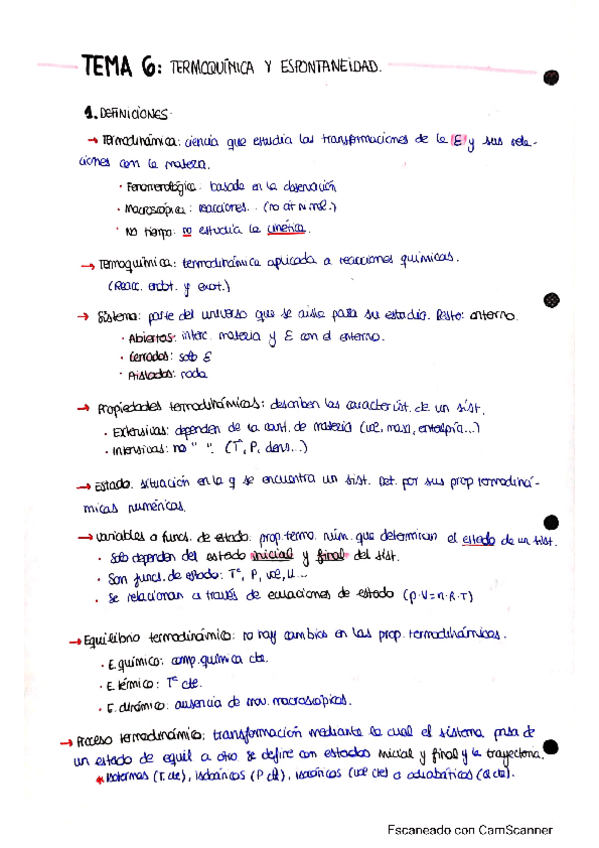 TEMA 6: TERMOQUÍMICA Y ESPONTANEIDAD.
1. DEFINICIONES.
→ Termodinámica: ciencia que estudia las transformaciones de la E y sus rela-
ciones con la materia.
· Fenomenológica: basada en la observación
· Macroscópica: reacciones... (no át ni mol.)
· No tiempo: no estudia la cinética.
→ Termoquímica: termodinámica aplicada a reacciones químicas.
(Reacc. endot. y exot.)
→ Sistema: parte del universo que se aísla para su estudio. Resto: entorno.
· Abiertos: interc. materia y E con el entorno.
· Cerrados: solo E
· Aislados: nada
→ Propiedades termodinámicas: describen las característ. de un sist.
· Extensivas: dependen de la cant. de materia (vol, masa, entalpía...)
· Intensivas: no " ". (Tª, P, dens...)
→ Estado: situación en la q se encuentra un sist. Det. por sus prop termodiná-
micas numéricas.
→ Variables o funcs. de estado: prop. termo. núm. que determinan el estado de un sist.
· Solo dependen del estado inicial y final del sist.
· Son funcs. de estado: Tª, P, vol, U...
· Se relacionan a través de ecuaciones de estado (P·V=n·R·T)
→ Equilibrio termodinámico: no hay cambios en las prop. termodinámicas.
· E. químico: comp. química cte.
· E. térmico: Tª cte.
· E. dinámico: ausencia de mov. macroscópicos.
→ Proceso termodinámico: transformación mediante la cual el sistema pasa de
un estado de equil a otro se define con estados inicial y final y la trayectoria.
* Isotermos (T. cte), isobáricos (P cte), isocóricos (vol cte) o adiabáticos (Q cte).
Escaneado con CamScanner